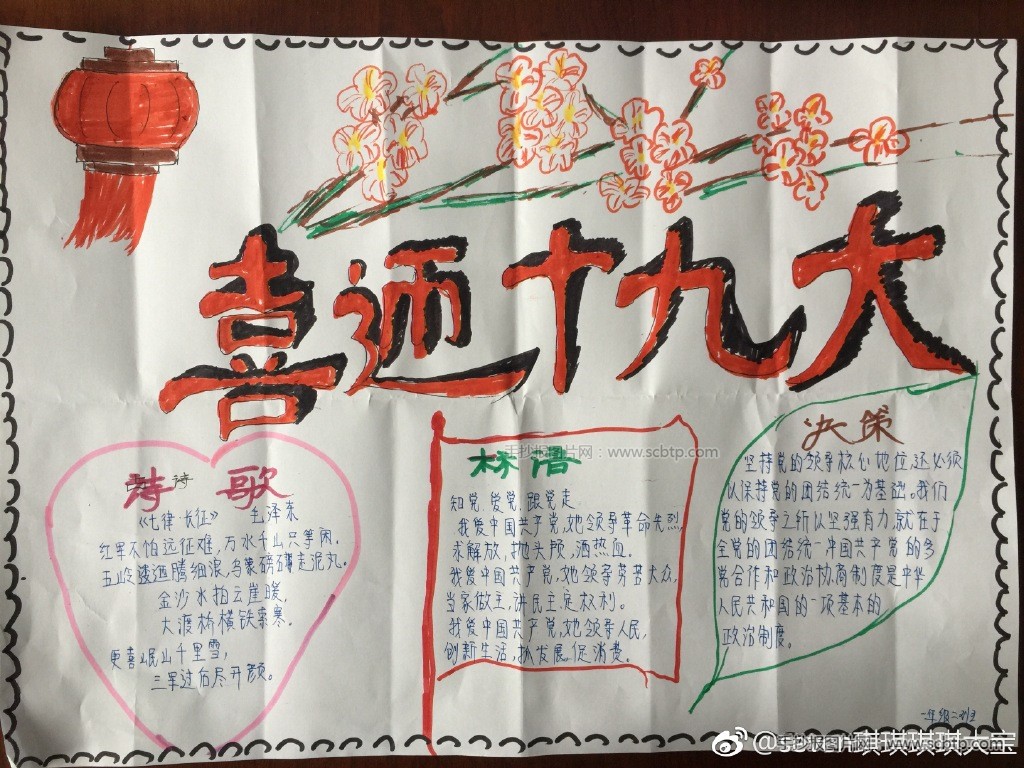 喜迎十九大
诗歌
诗
《七律·长征》 毛泽东
红军不怕远征难,万水千山只等闲。
五岭逶迤腾细浪,乌蒙磅礴走泥丸。
金沙水拍云崖暖,
大渡桥横铁索寒。
更喜岷山千里雪,
三军过后尽开颜。
手抄报图片网:www.scbtp.com
标语
知党、爱党、跟党走
我爱中国共产党,她领导革命先烈
求解放,抛头颅,洒热血。
我爱中国共产党,她领导劳苦大众,
当家做主,讲民主,定权利。
我爱中国共产党,她领导人民,
创新生活,抓发展,促消费。
决策
坚持党的领导核心地位,还必须
以保持党的团结统一为基础。我们
党的领导之所以坚强有力,就在于
全党的团结统一中国共产党的多
党合作和政治协商制度是中华
人民共和国的一项基本的
政治制度。
一年级二班
手抄报图片网:www.scbtp.com
琪琪琪琪大宝